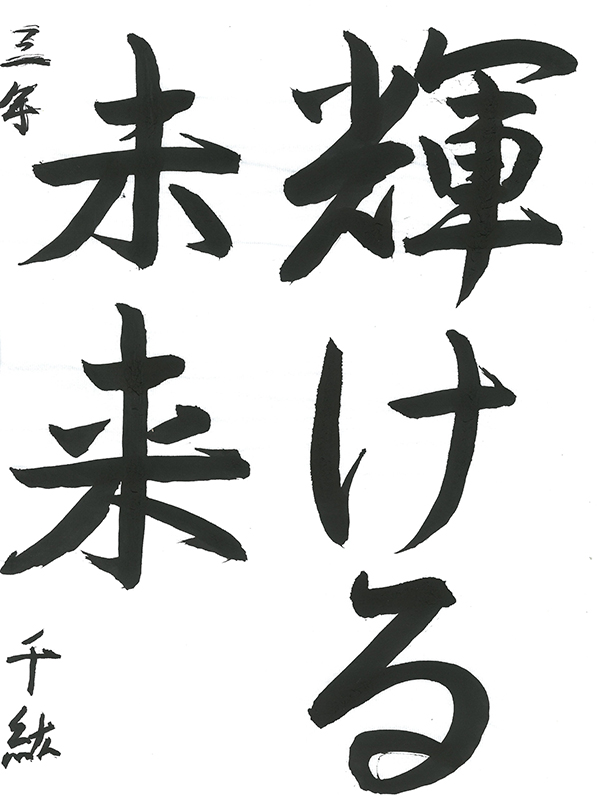 輝ける
未来
三年
千紘